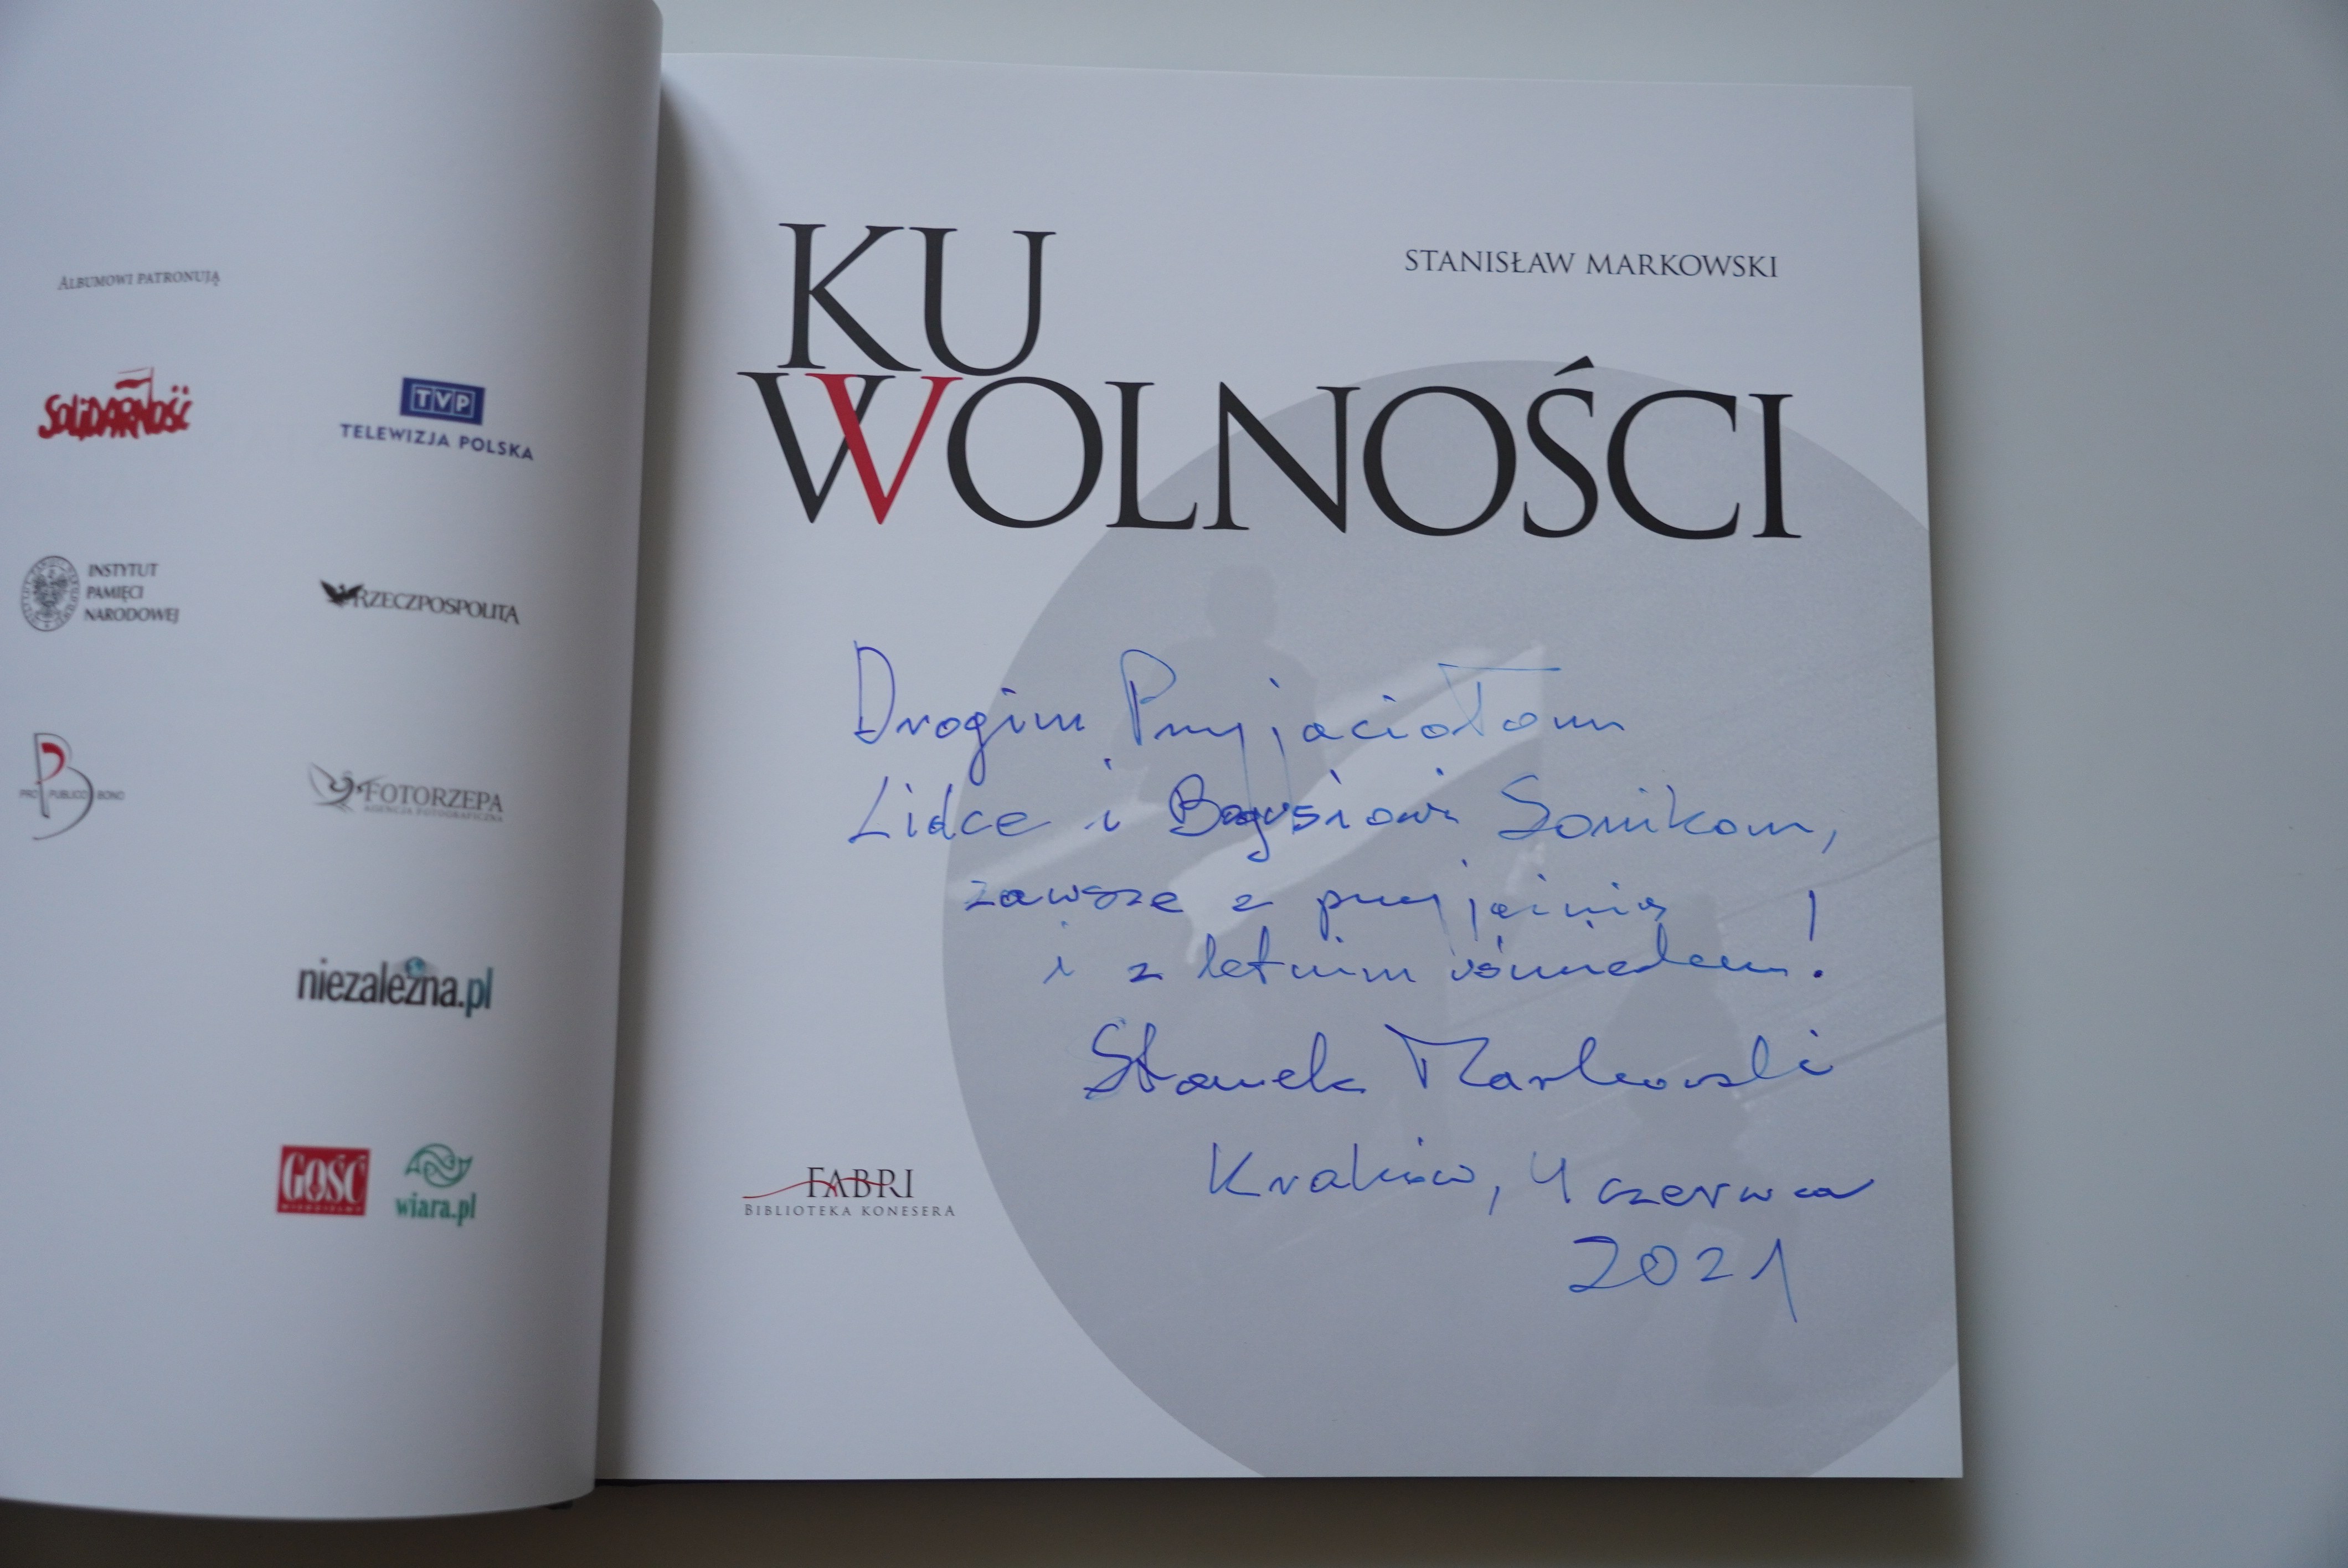 ALBUMOWI PATRONUJĄ
SOLIDARNOŚĆ
TVP
TELEWIZJA POLSKA
INSTYTUT
PAMIĘCI
NARODOWEJ
RZECZPOSPOLITA
PRO PUBLICO BONO
FOTORZEPA
AGENCJA FOTOGRAFICZNA
niezależna.pl
GOŚĆ
NIEDZIELNY
wiara.pl
STANISŁAW MARKOWSKI
KU
WOLNOŚCI
Drogim Przyjaciołom
Lidce i Bogusiowi Sonikom,
zawsze z przyjaźnią
i z letnim uśmiechem!
Stanek Markowski
Kraków, 4 czerwca
2021
FABRI
BIBLIOTEKA KONESERA